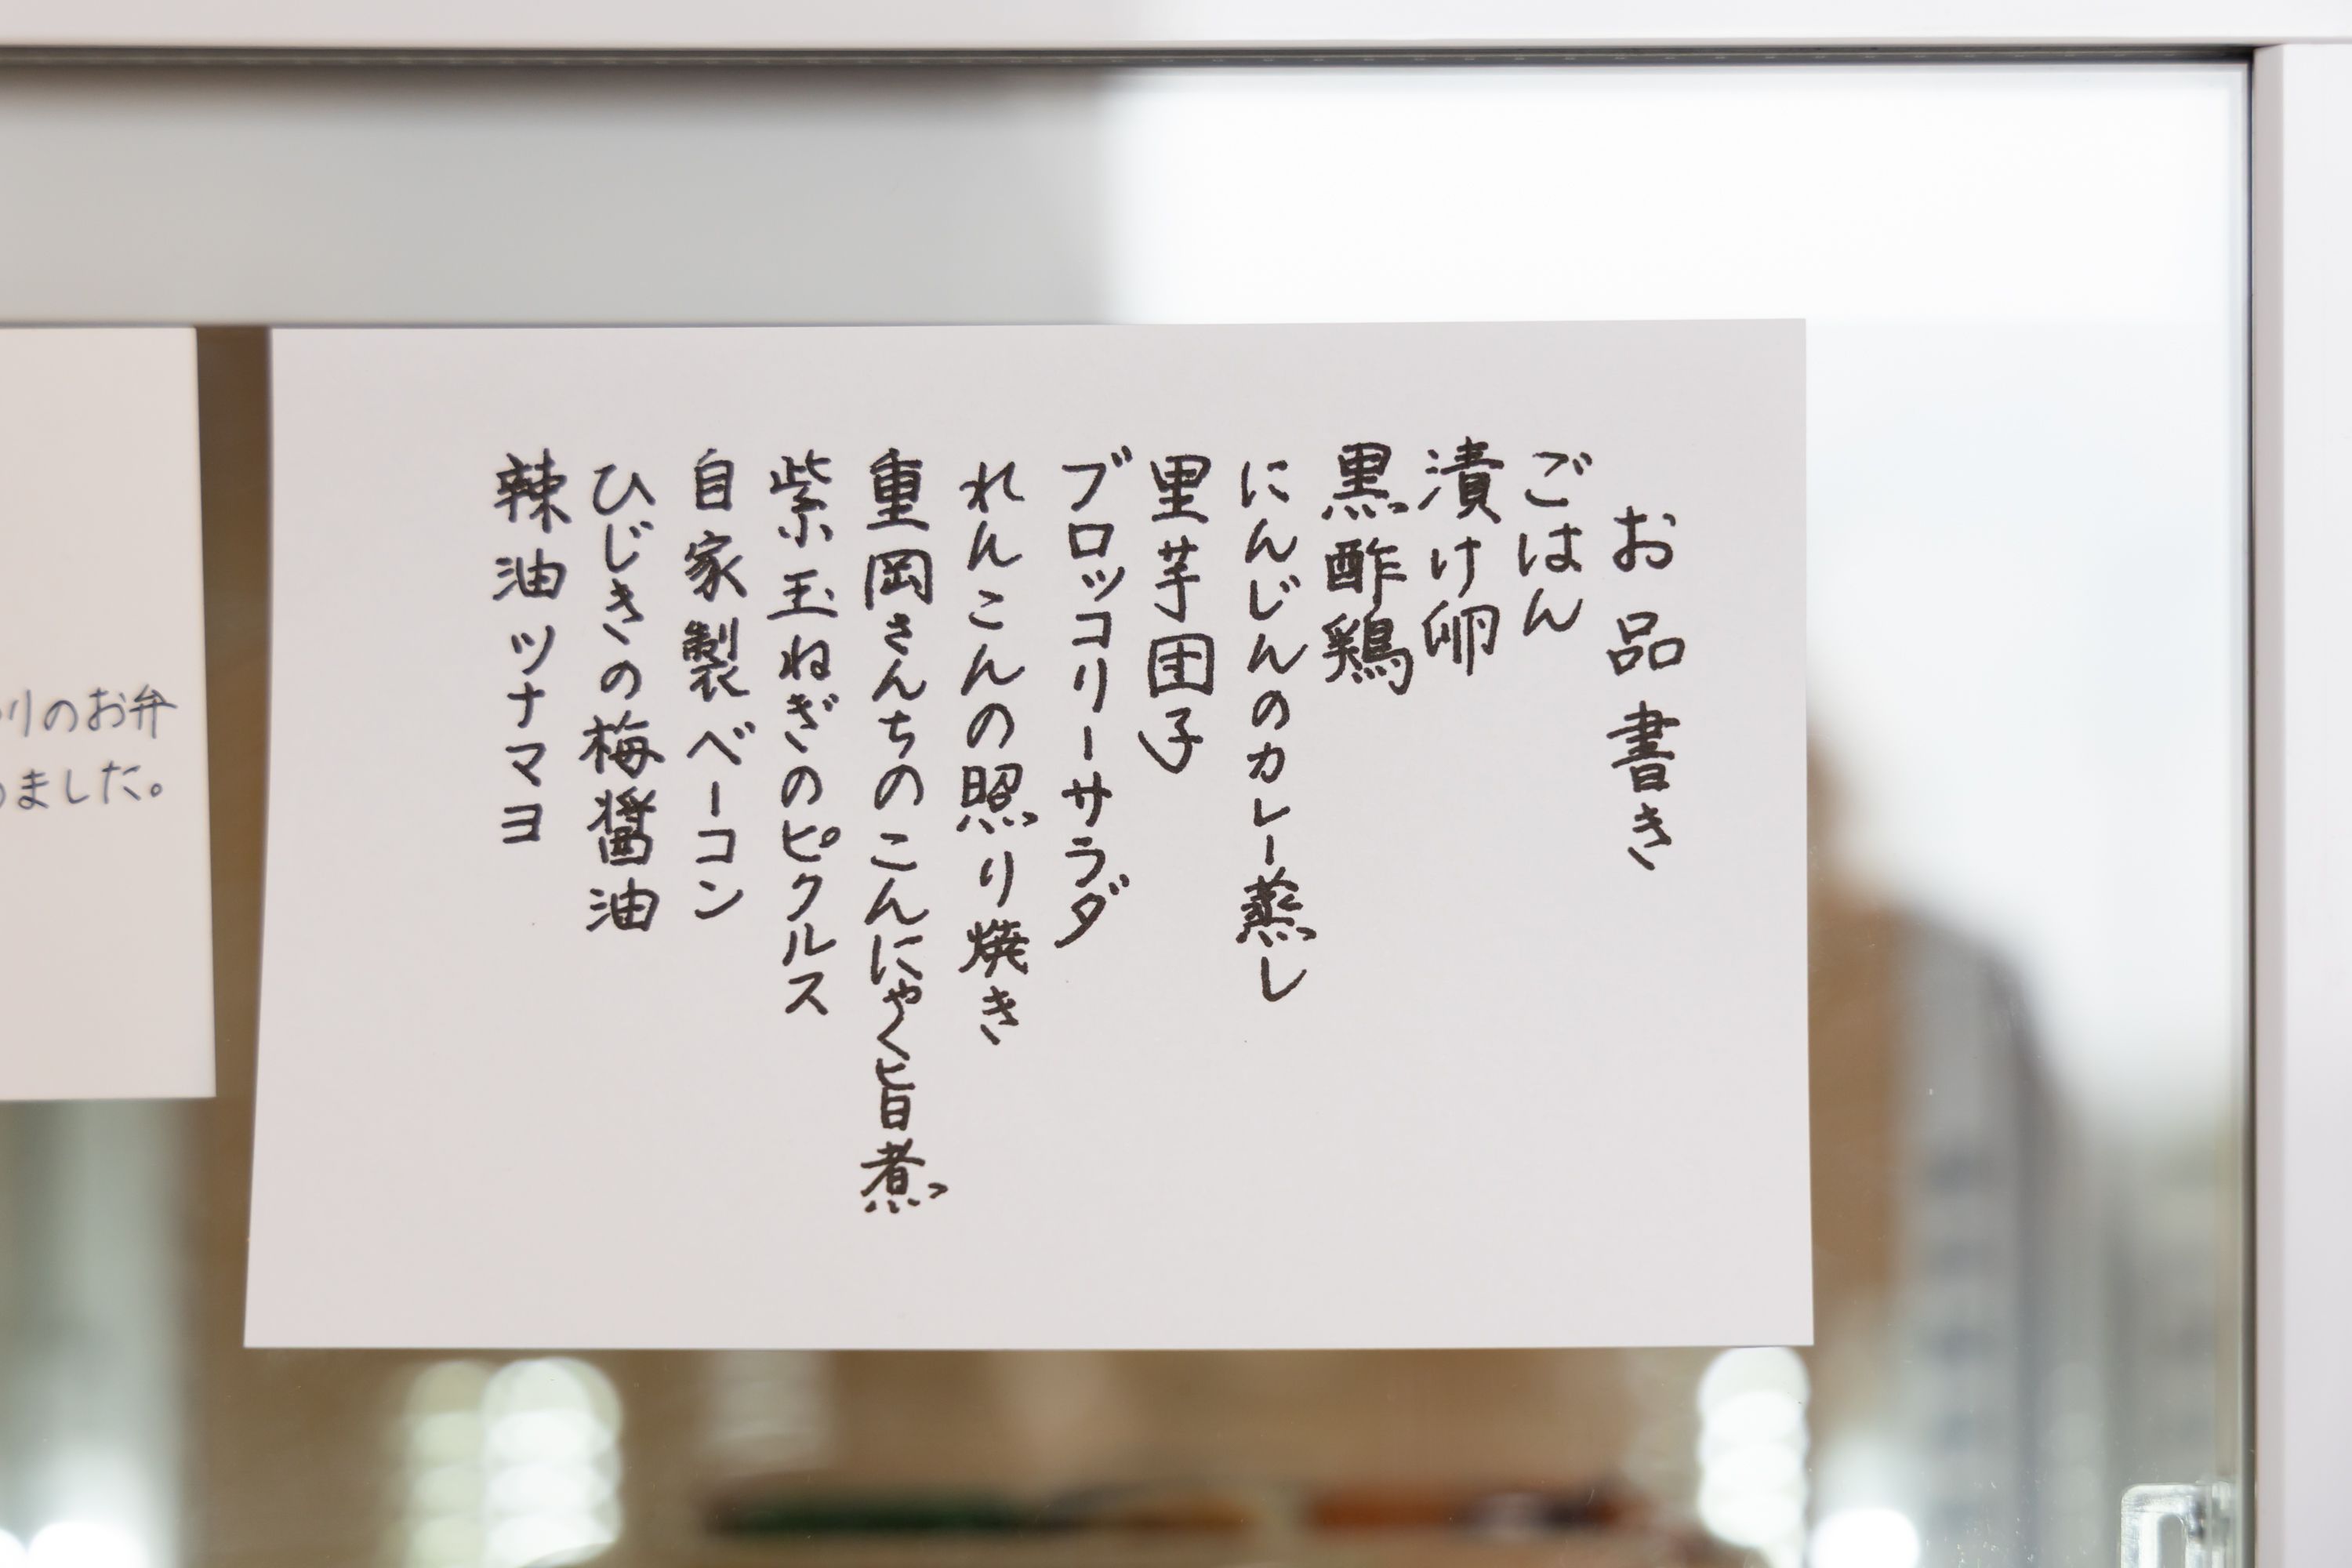 お品書き
ごはん
漬け卵
黒酢鶏
にんじんのカレー蒸し
里芋団子
ブロッコリーサラダ
れんこんの照り焼き
重岡さんちのこんにゃく旨煮
紫玉ねぎのピクルス
自家製ベーコン
ひじきの梅醤油
辣油ツナマヨ
りのお弁
ました。